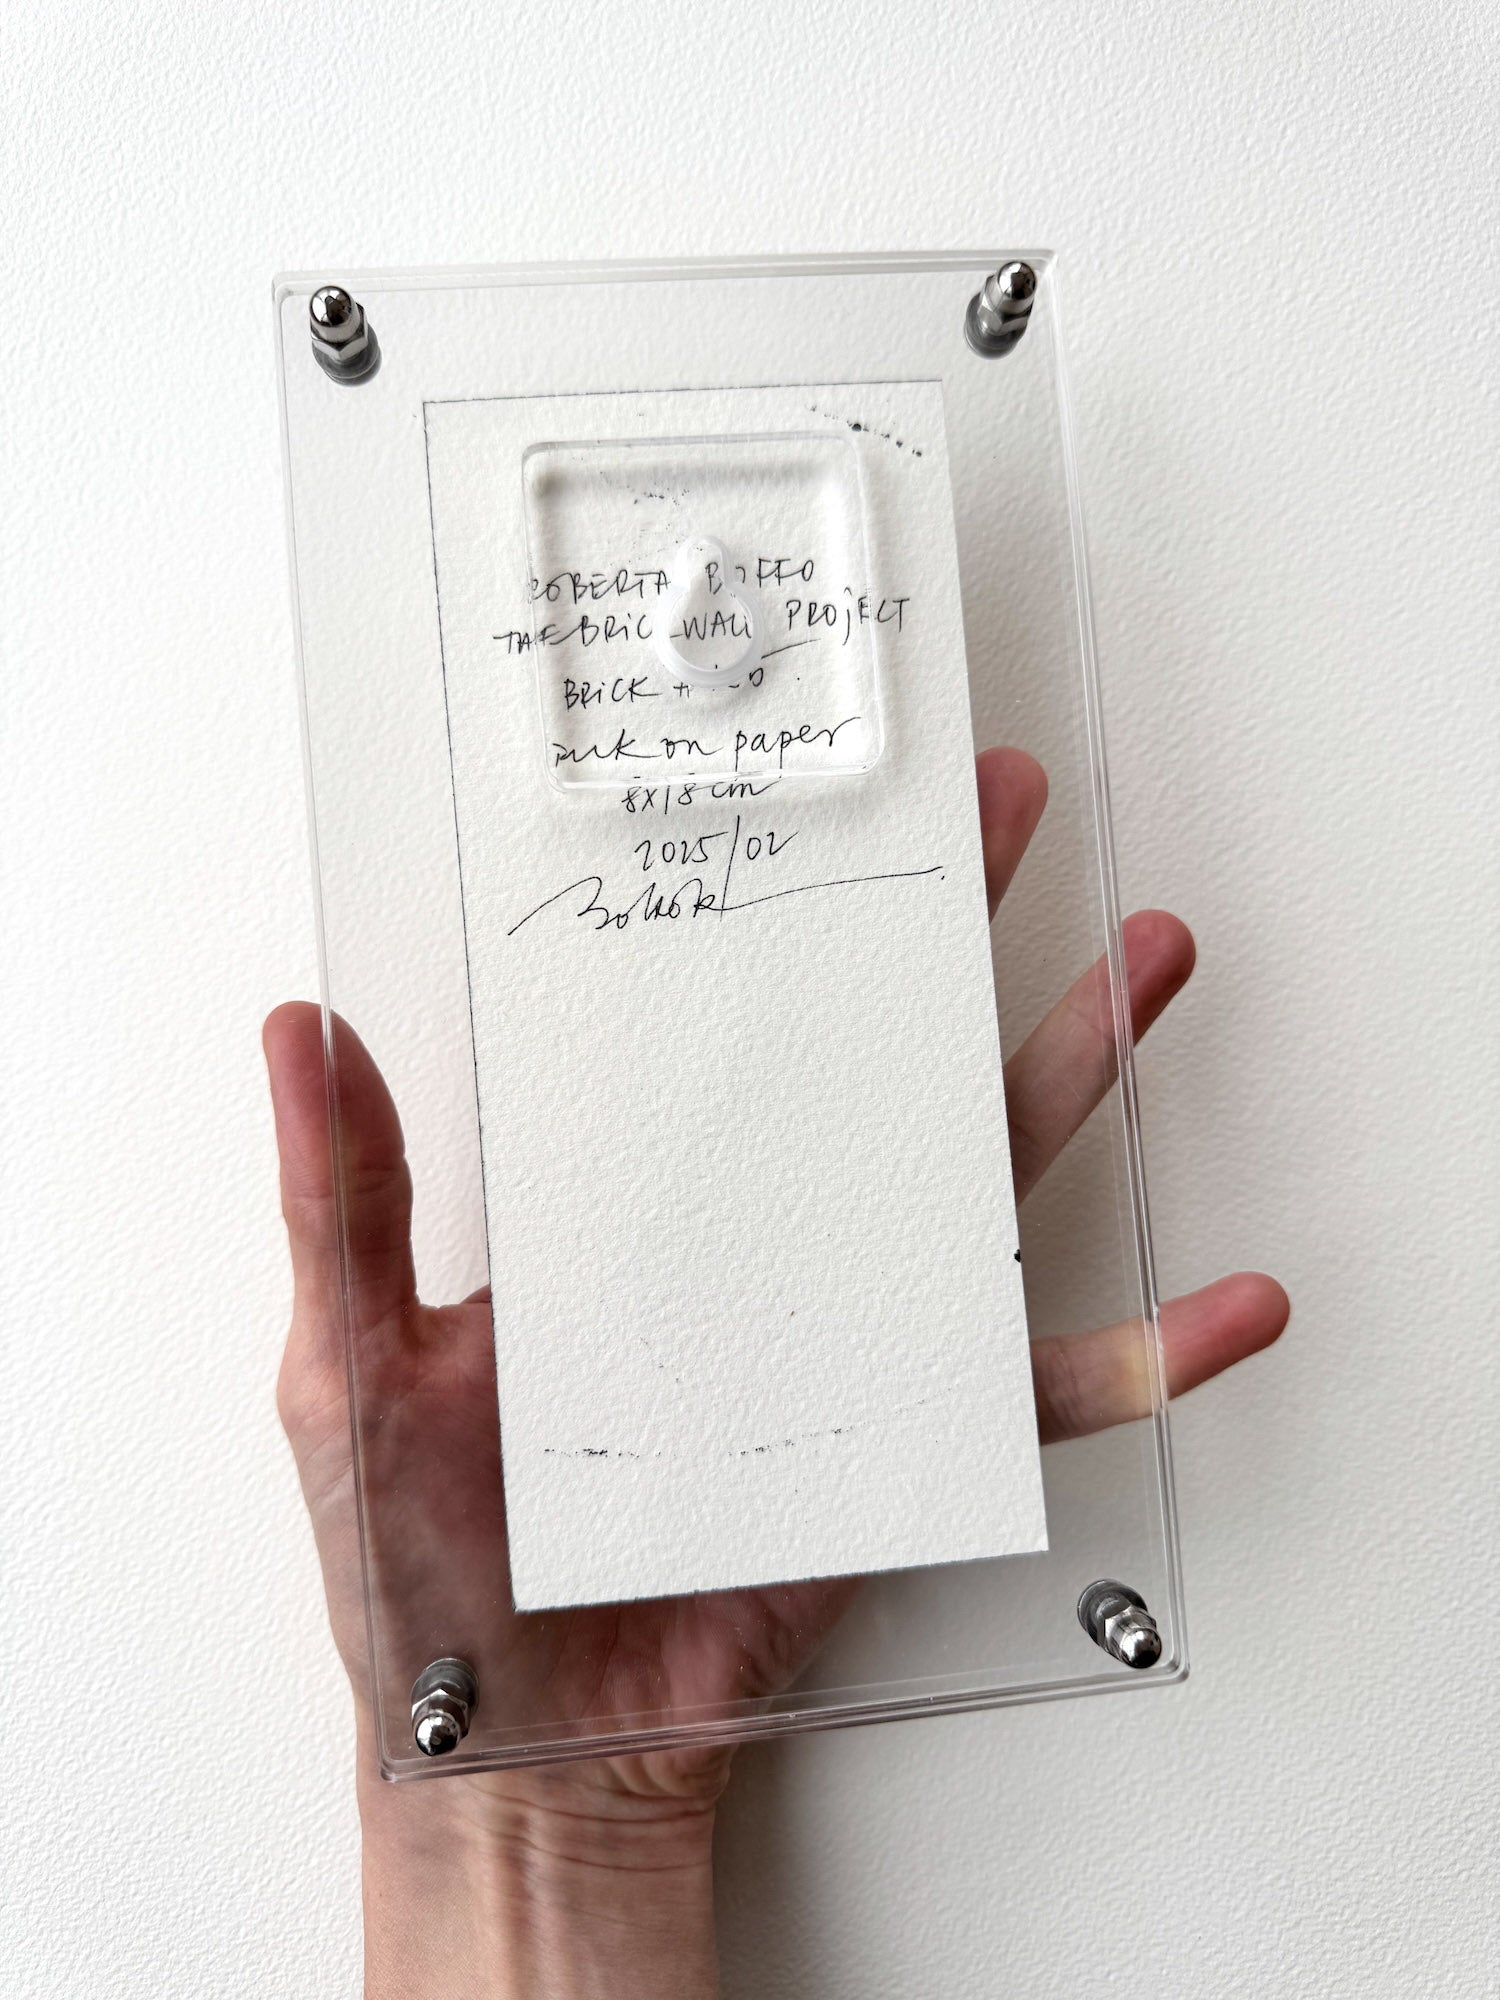 ROBERTA BOFFO
THE BRICK WALL PROJECT
BRICK
Ink on paper
8x18 cm
2025/02